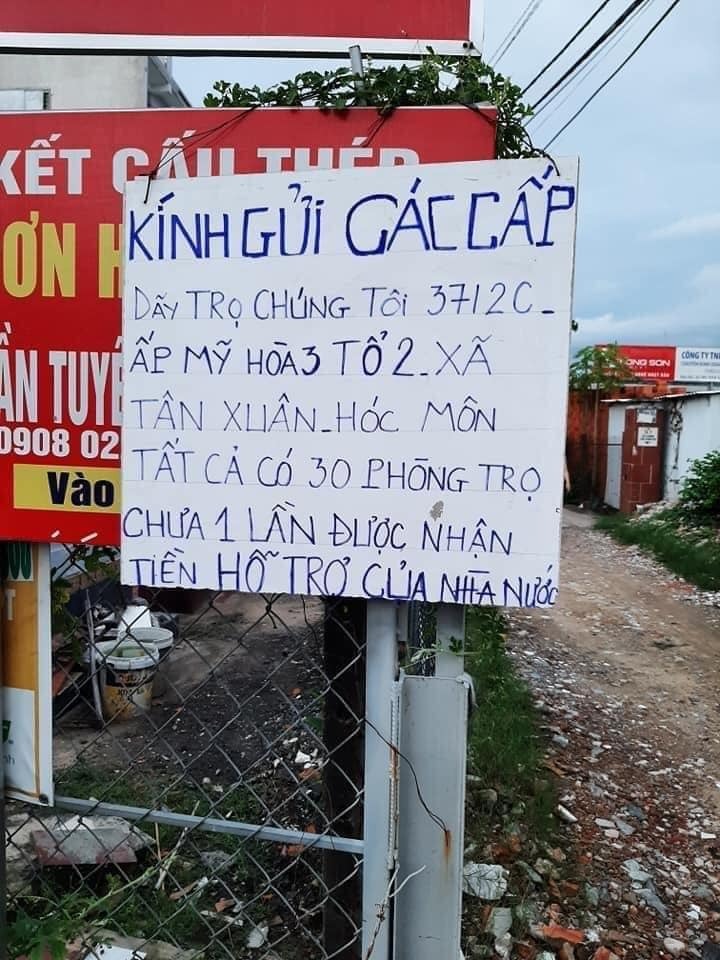 KẾT CẤU THÉP
ƠN H
ẦN TUYỂ
0908 02
Vào
KÍNH GỬI CÁC CẤP
DÃY TRỌ CHÚNG TÔI 3712C_
ẤP MỸ HÒA3 TỔ 2. XÃ
TÂN XUÂN_HÓC MÔN
TẤT CẢ CÓ 30 PHÒNG TRỌ
CHƯA 1 LẦN ĐƯỢC NHẬN
TIỀN HỖ TRỢ CỦA NHÀ NƯỚC
ONG SON
CÔNG TY TN